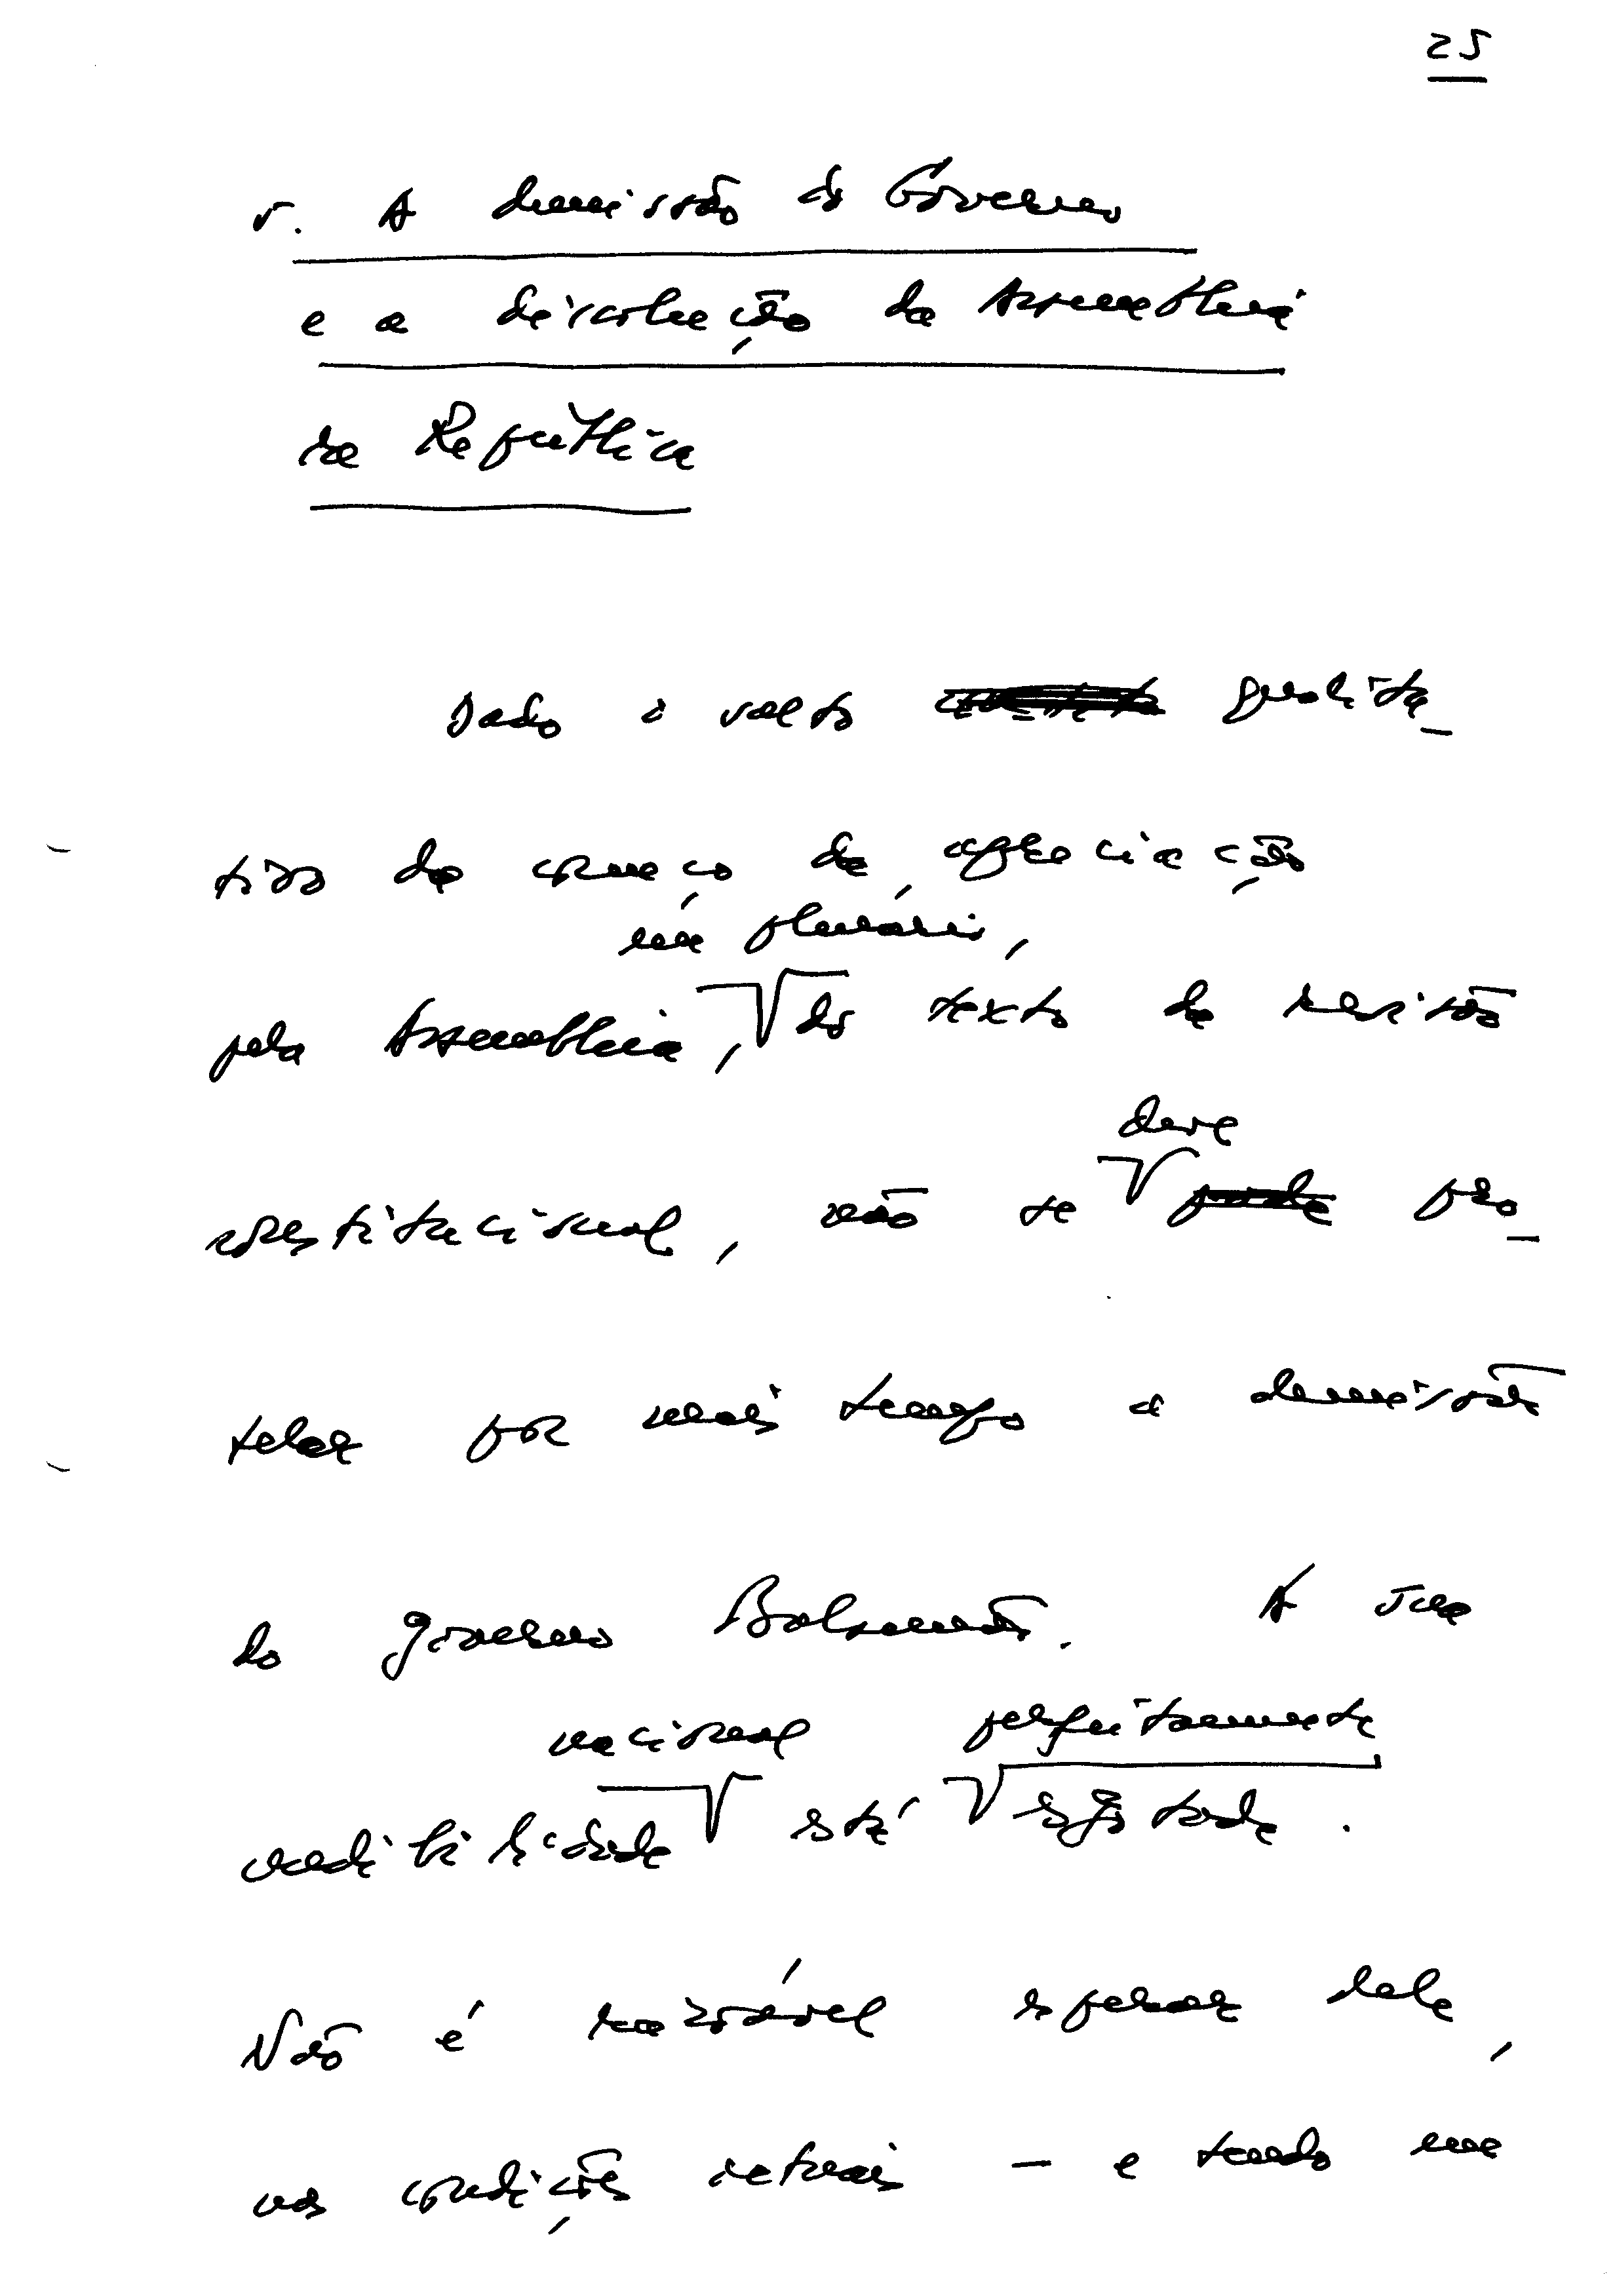 25
5. A demissão do Governo
e a dissolução da Assembleia
da República
Dado o salto qualita_
tivo do começo da apreciação
em plenário,
pela Assembleia, do texto da revisão
deve
constitucional, não se pode pro_
telar por mais tempo a demissão
do governo Balsemão. A sua
nacional perfeitamente
credibilidade está esgotada.
Não é razoável esperar dele,
nas condições actuais – e tendo em